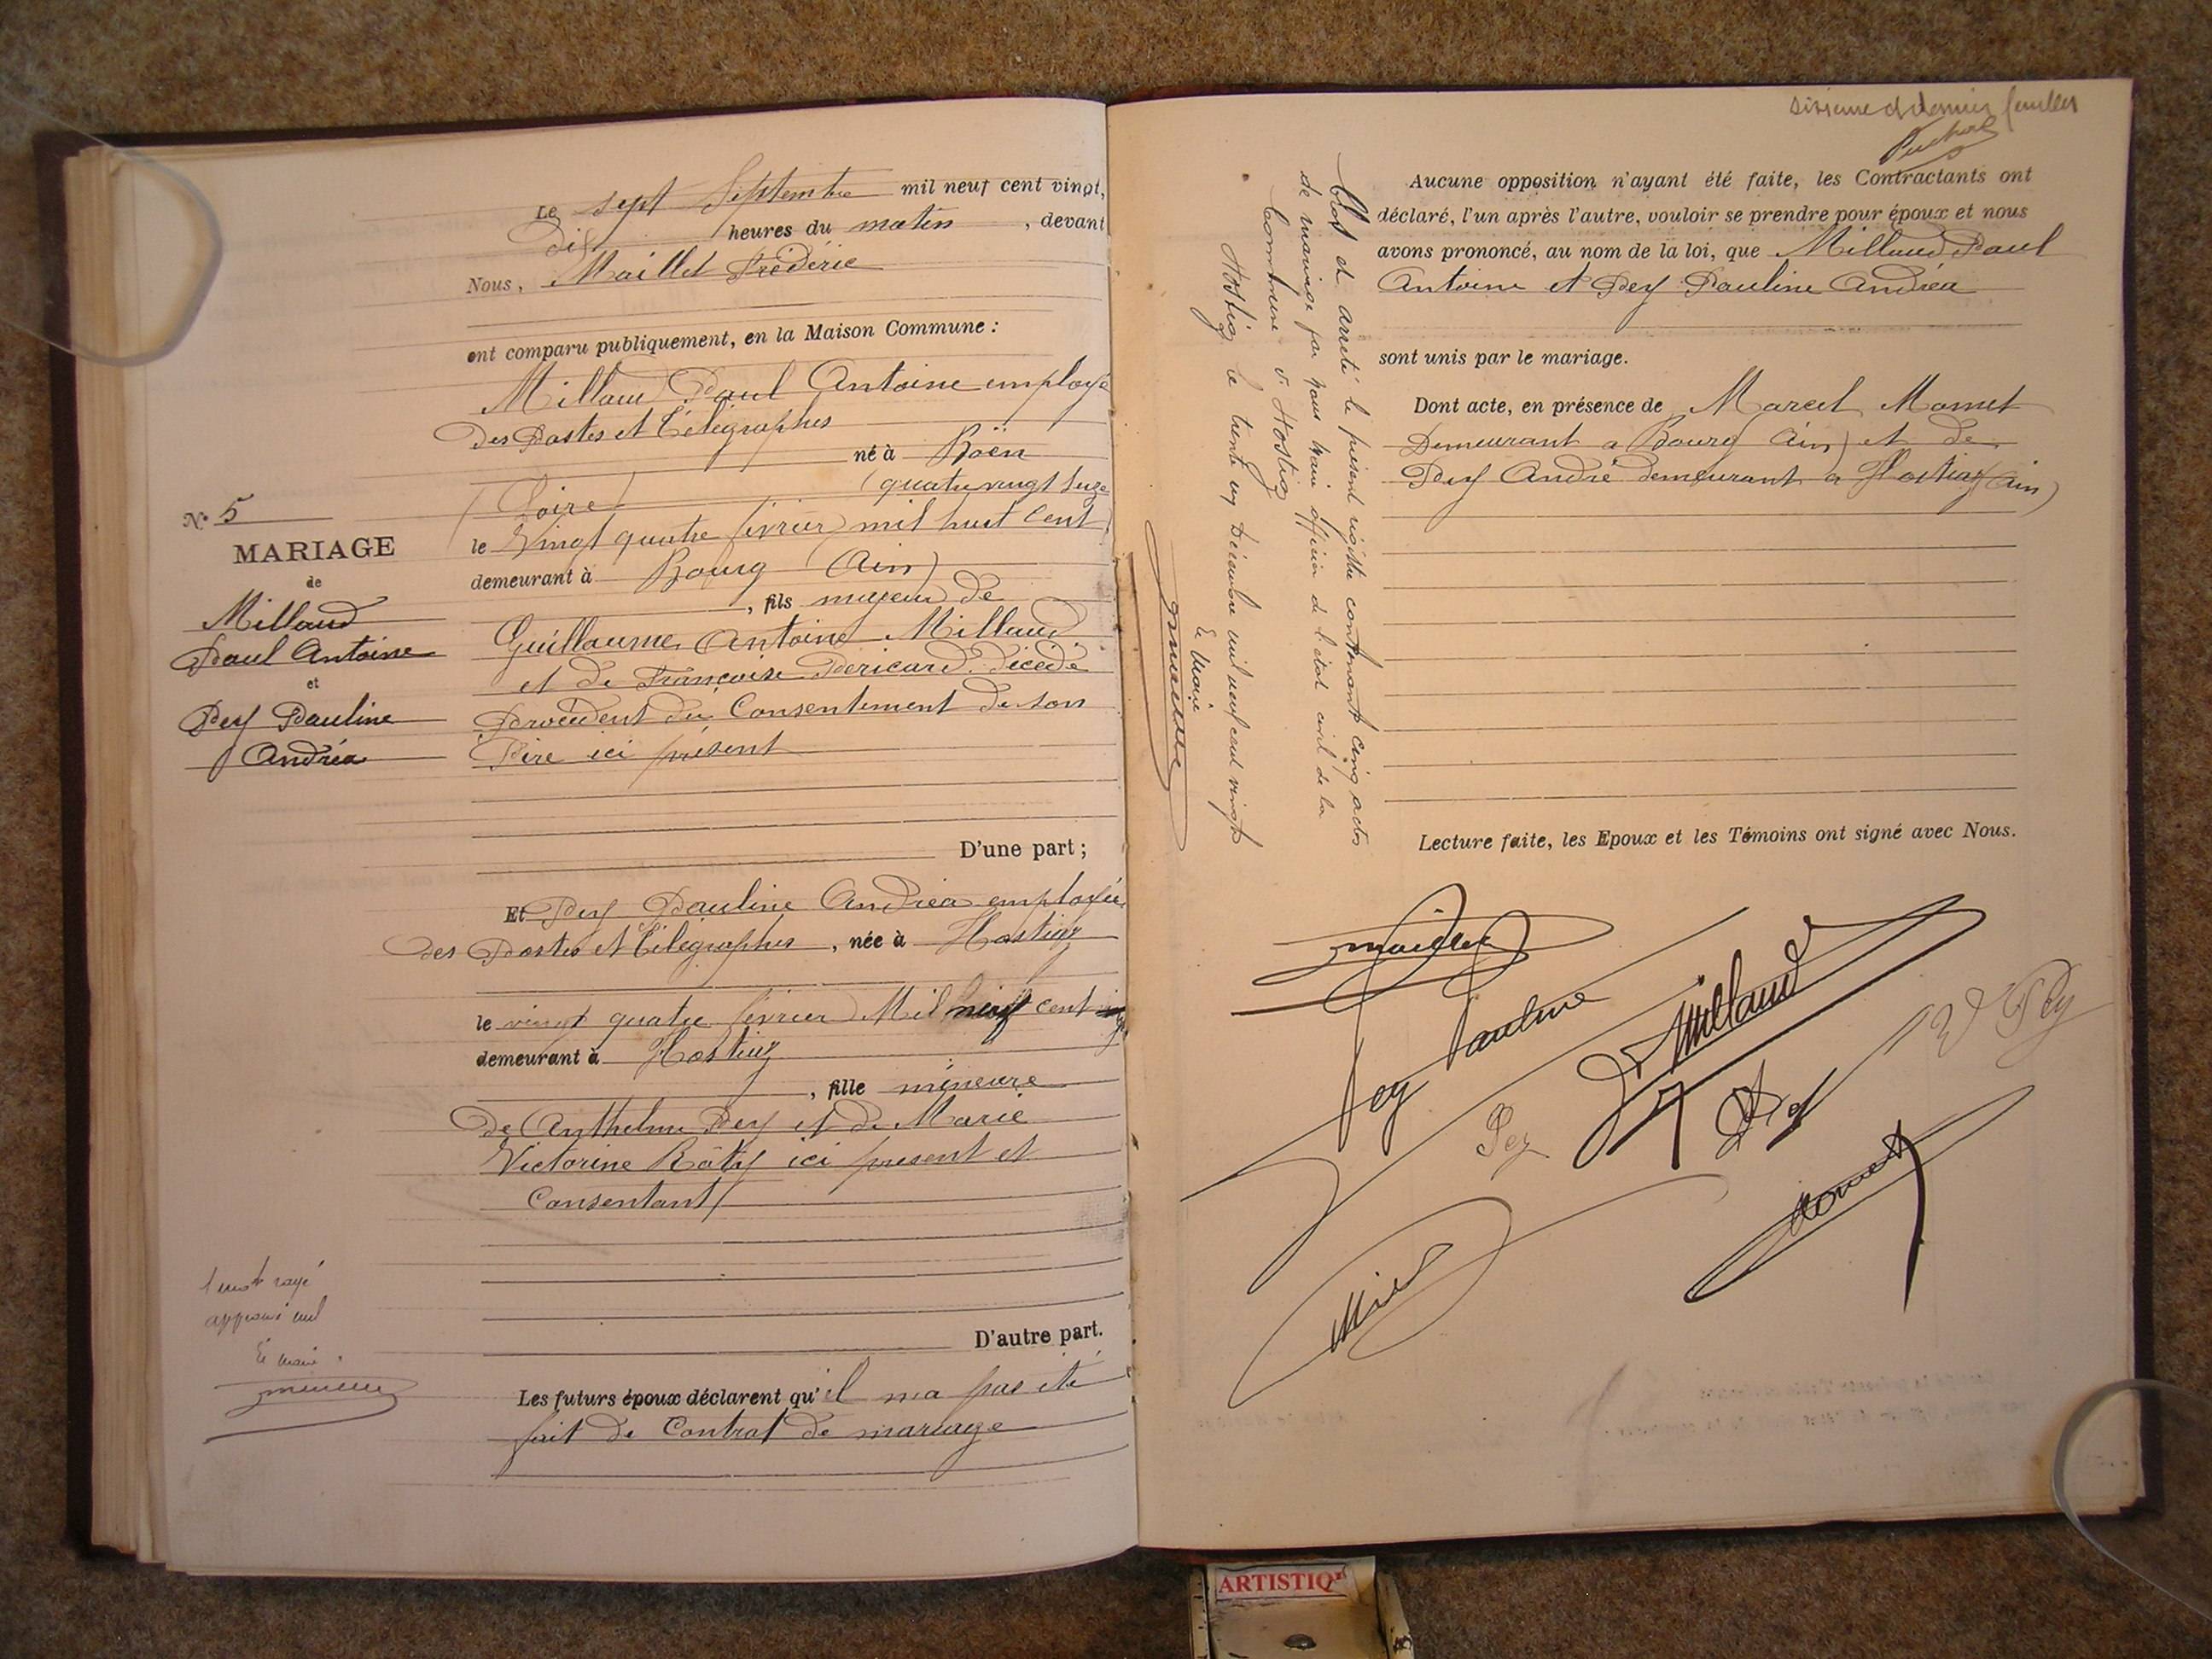 Le sept Septembre mil neuf cent vingt,
dix heures du matin, devant
Nous, Maillet Frédéric
ont comparu publiquement, en la Maison Commune :
Millaud Paul Antoine employé
des Postes et Télégraphes
né à Boën
(Loire) (quatre vingt seize
le Vingt quatre février mil huit cent
demeurant à Bourg (Ain)
, fils majeur de
Guillaume Antoine Millaud
et de Françoise Pericard décédé
Procédent du Consentement de son
Père ici présent
D'une part ;
N° 5
MARIAGE
de
Millaud
Paul Antoine
et
Pey Pauline
Andréa
Et Pey Pauline Andréa employée
des Postes et Télégraphes, née à Hostiaz
le vingt quatre février Mil neuf cent
demeurant à Hostiaz
, fille mineure
de Anthelme Pey et de Marie
Victorine Râty ici présent et
Consentant
D'autre part.
1 mot rayé
approuvé nul
Le maire
Les futurs époux déclarent qu'il n'a pas été
fait de Contrat de mariage
sixième et dernier feuillet
Aucune opposition n'ayant été faite, les Contractants ont
déclaré, l'un après l'autre, vouloir se prendre pour époux et nous
avons prononcé, au nom de la loi, que Millaud Paul
Antoine et Pey Pauline Andréa
sont unis par le mariage.
Dont acte, en présence de Marcel Mornet
Demeurant a Bourg (Ain) et de
Pey André demeurant a Hostiaz (Ain)
Lecture faite, les Epoux et les Témoins ont signé avec Nous.
Clos et arrêté le présent registre contenant cinq actes
de mariage par nous maire officier de l'état civil de la
commune d'Hostiaz
Hostiaz le trente un Décembre mil neuf cent vingt
Le Maire
Pey Pauline
P. Millaud
Pey
ARTISTIQ